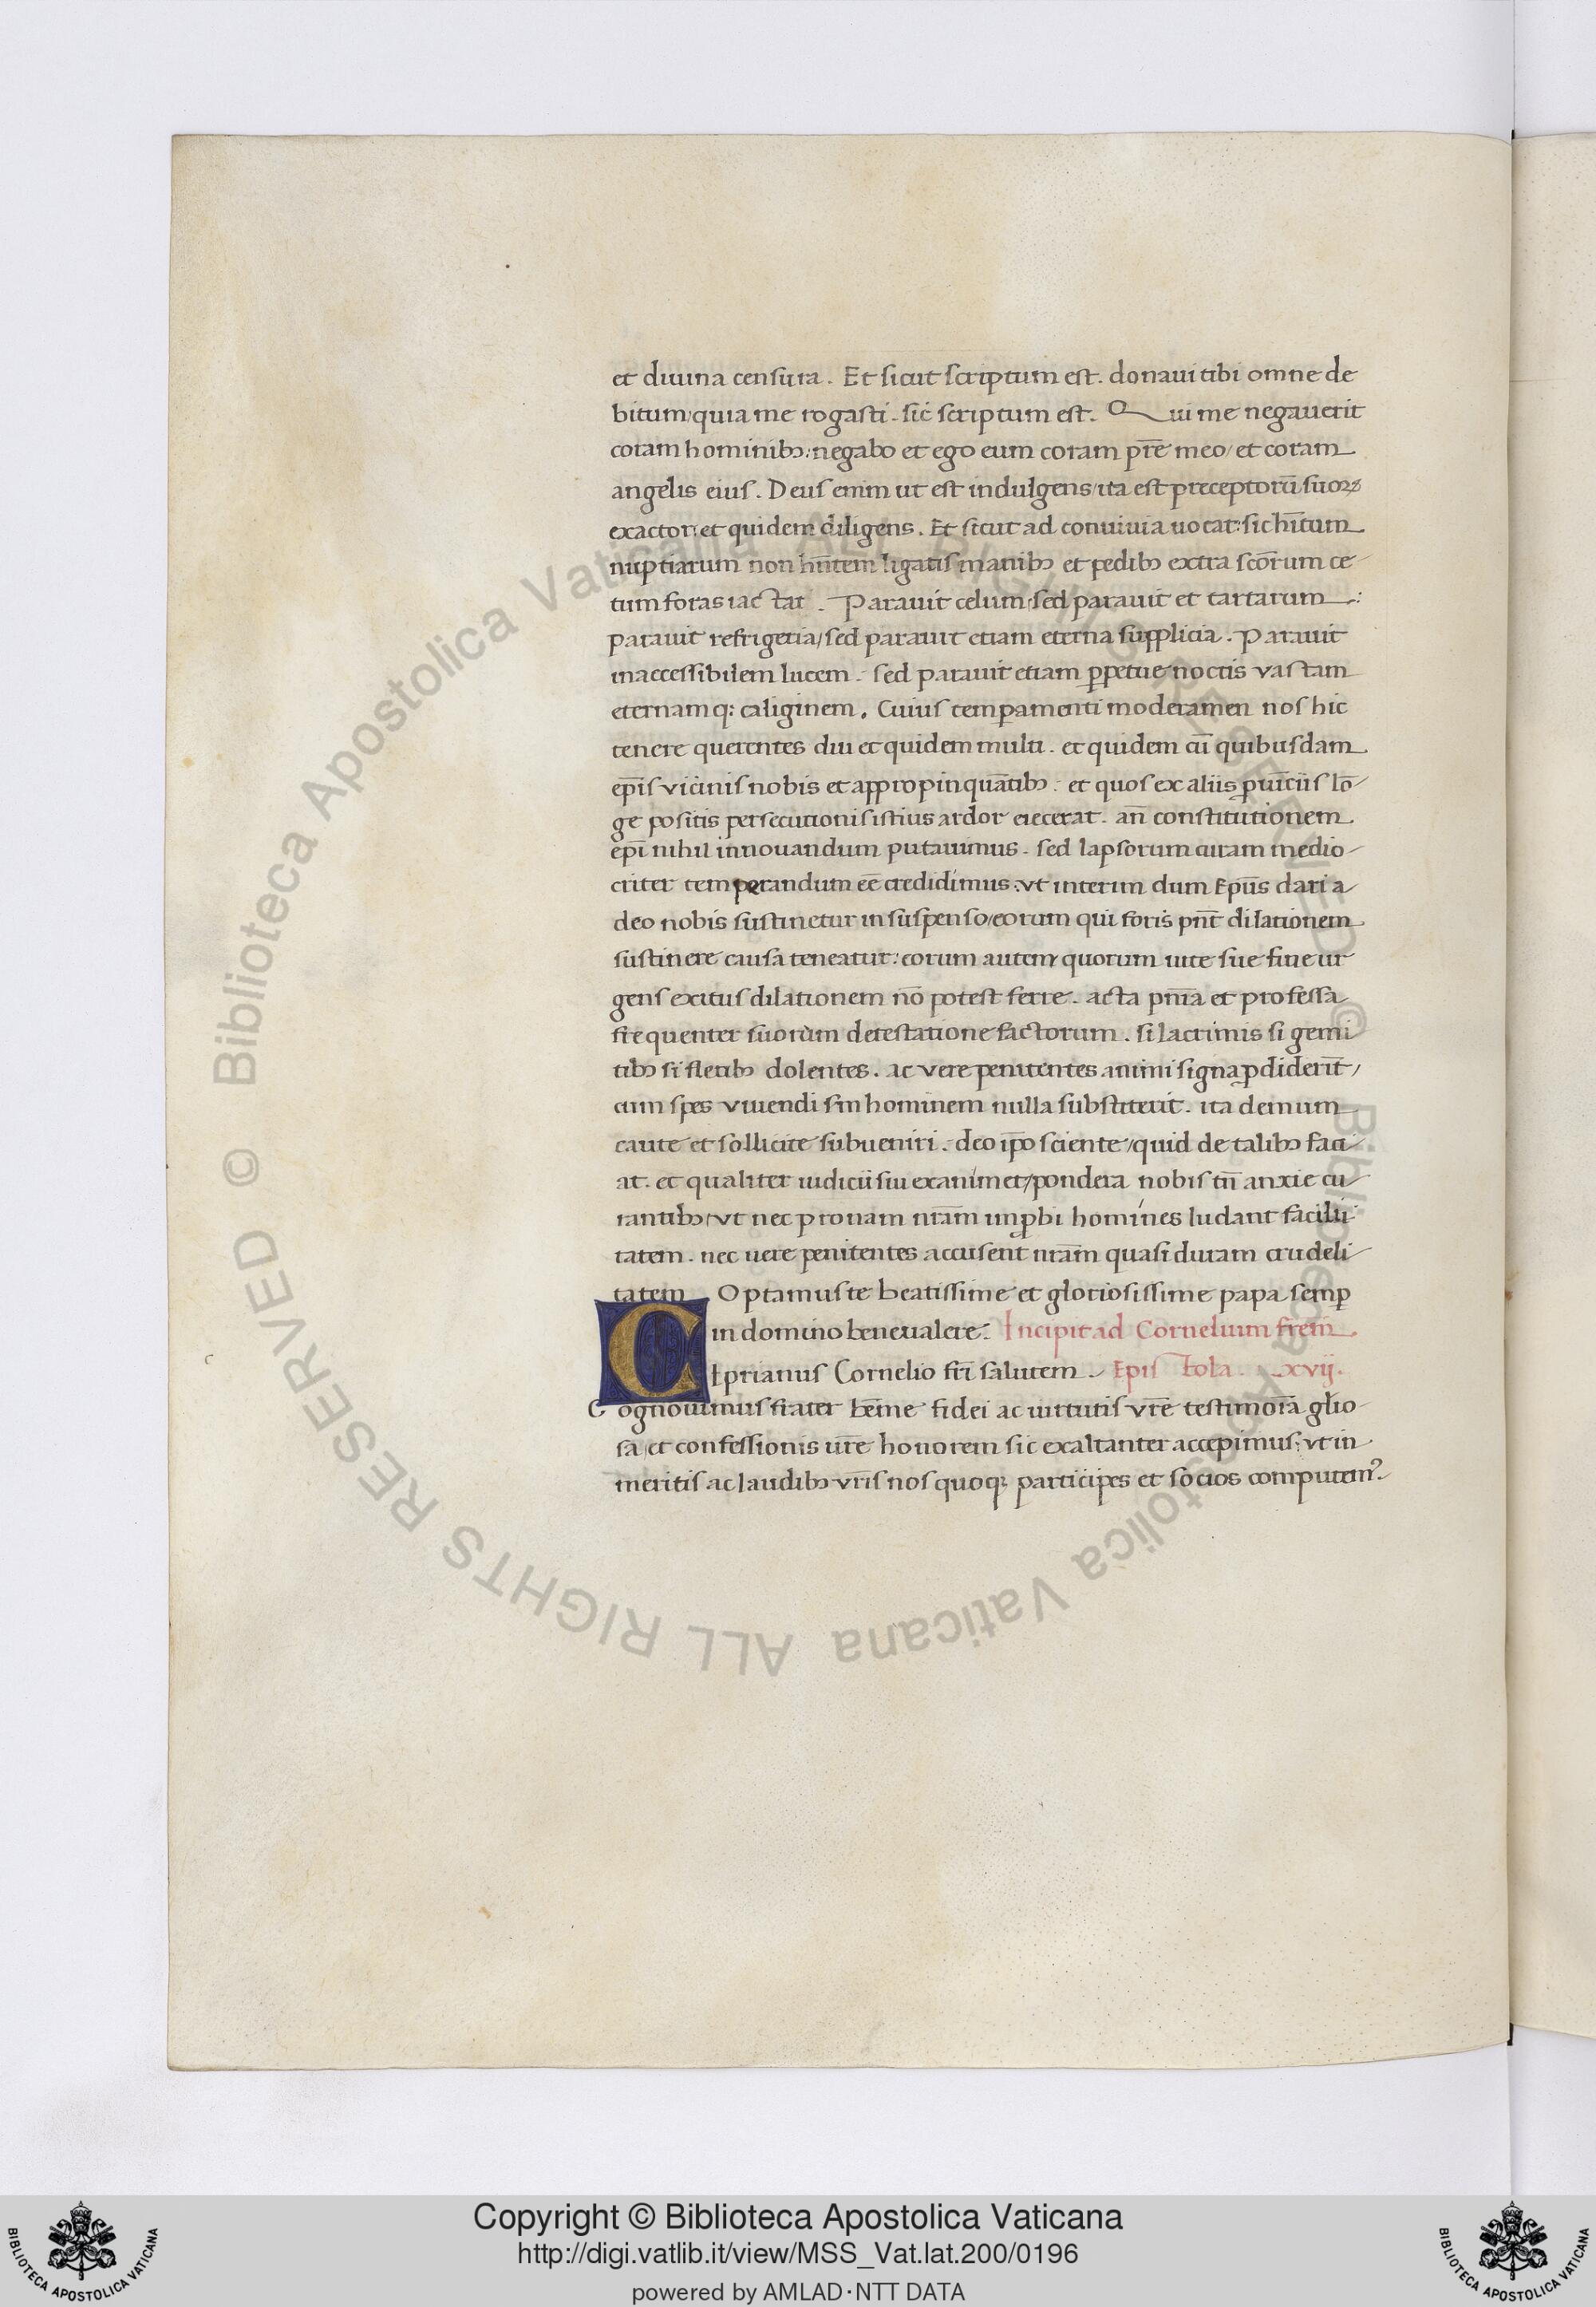 et diuina censura. Et sicut scriptum est. donaui tibi omne de
bitum/quia me rogasti. sic scriptum est. Qui me negauerit
coram hominibꝫ: negabo et ego eum coram pr̄e meo/et coram
angelis eius. Deus enim ut est indulgens/ita est preceptorū suoꝝ
exactor: et quidem diligens. Et sicut ad conuiuia uocat: sic hītum
nuptiarum non hn̄tem ligatis manibꝫ et pedibꝫ extra scōrum ce-
tum foras iactat. Parauit celum/sed parauit et tartarum:
parauit refrigeria/sed parauit etiam eterna supplicia. Parauit
inaccessibilem lucem. sed parauit etiam ꝑpetue noctis vastam
eternamq: caliginem. Cuius temꝑamenti moderamen nos hic
tenere querentes diu et quidem multi. et quidem cū quibusdam
ep̄is vicinis nobis et appropinquātibꝫ: et quos ex aliis ꝓuīciis lō-
ge positis persecutionis istius ardor eiecerat. an̄ constitutionem
ep̄i nihil innouandum putauimus. sed lapsorum curam medio-
criter temperandum eē credidimus: vt interim dum Ep̄us dari a
deo nobis sustinetur in suspenso/eorum qui foris pn̄t dilationem
sustinere causa teneatur: eorum autem quorum uite sue fine ur
gens exitus dilationem nō potest ferre. acta pn̄ia et professa
frequenter suorum detestatione factorum. si lacrimis si gemi
tibꝫ si fletibꝫ dolentes. ac vere penitentes animi signa ꝓdiderīt/
cum spes viuendi sm̄ hominem nulla substiterit. ita demum
caute et sollicite subueniri. deo ip̄o sciente/quid de talibꝫ faci
at. et qualiter iudicii sui examinet/pondera nobis tn̄ anxie cu
rantibꝫ/vt nec pronam nr̄am improbi homines ludant facilii
tatem. nec uere penitentes accusent nr̄am quasi duram crudeli
tatem. Optamus te beatissime et gloriosissime papa semꝑ
in domino beneualere: Incipit ad Cornelium frem̄
CIprianus Cornelio fr̄i salutem. Epistola. xvij.
Cognouimus frater kr̄me fidei ac uirtutis vr̄e testimoīa glīo-
sa/et confessionis ur̄e honorem sic exaltanter accepimus: vt in
meritis ac laudibꝫ vr̄is nos quoqꝫ participes et socios computem᾽.
Copyright © Biblioteca Apostolica Vaticana
http://digi.vatlib.it/view/MSS_Vat.lat.200/0196
powered by AMLAD·NTT DATA
© Biblioteca Apostolica Vaticana ALL RIGHTS RESERVED
© Biblioteca Apostolica Vaticana ALL RIGHTS RESERVED
BIBLIOTECA APOSTOLICA VATICANA
BIBLIOTECA APOSTOLICA VATICANA